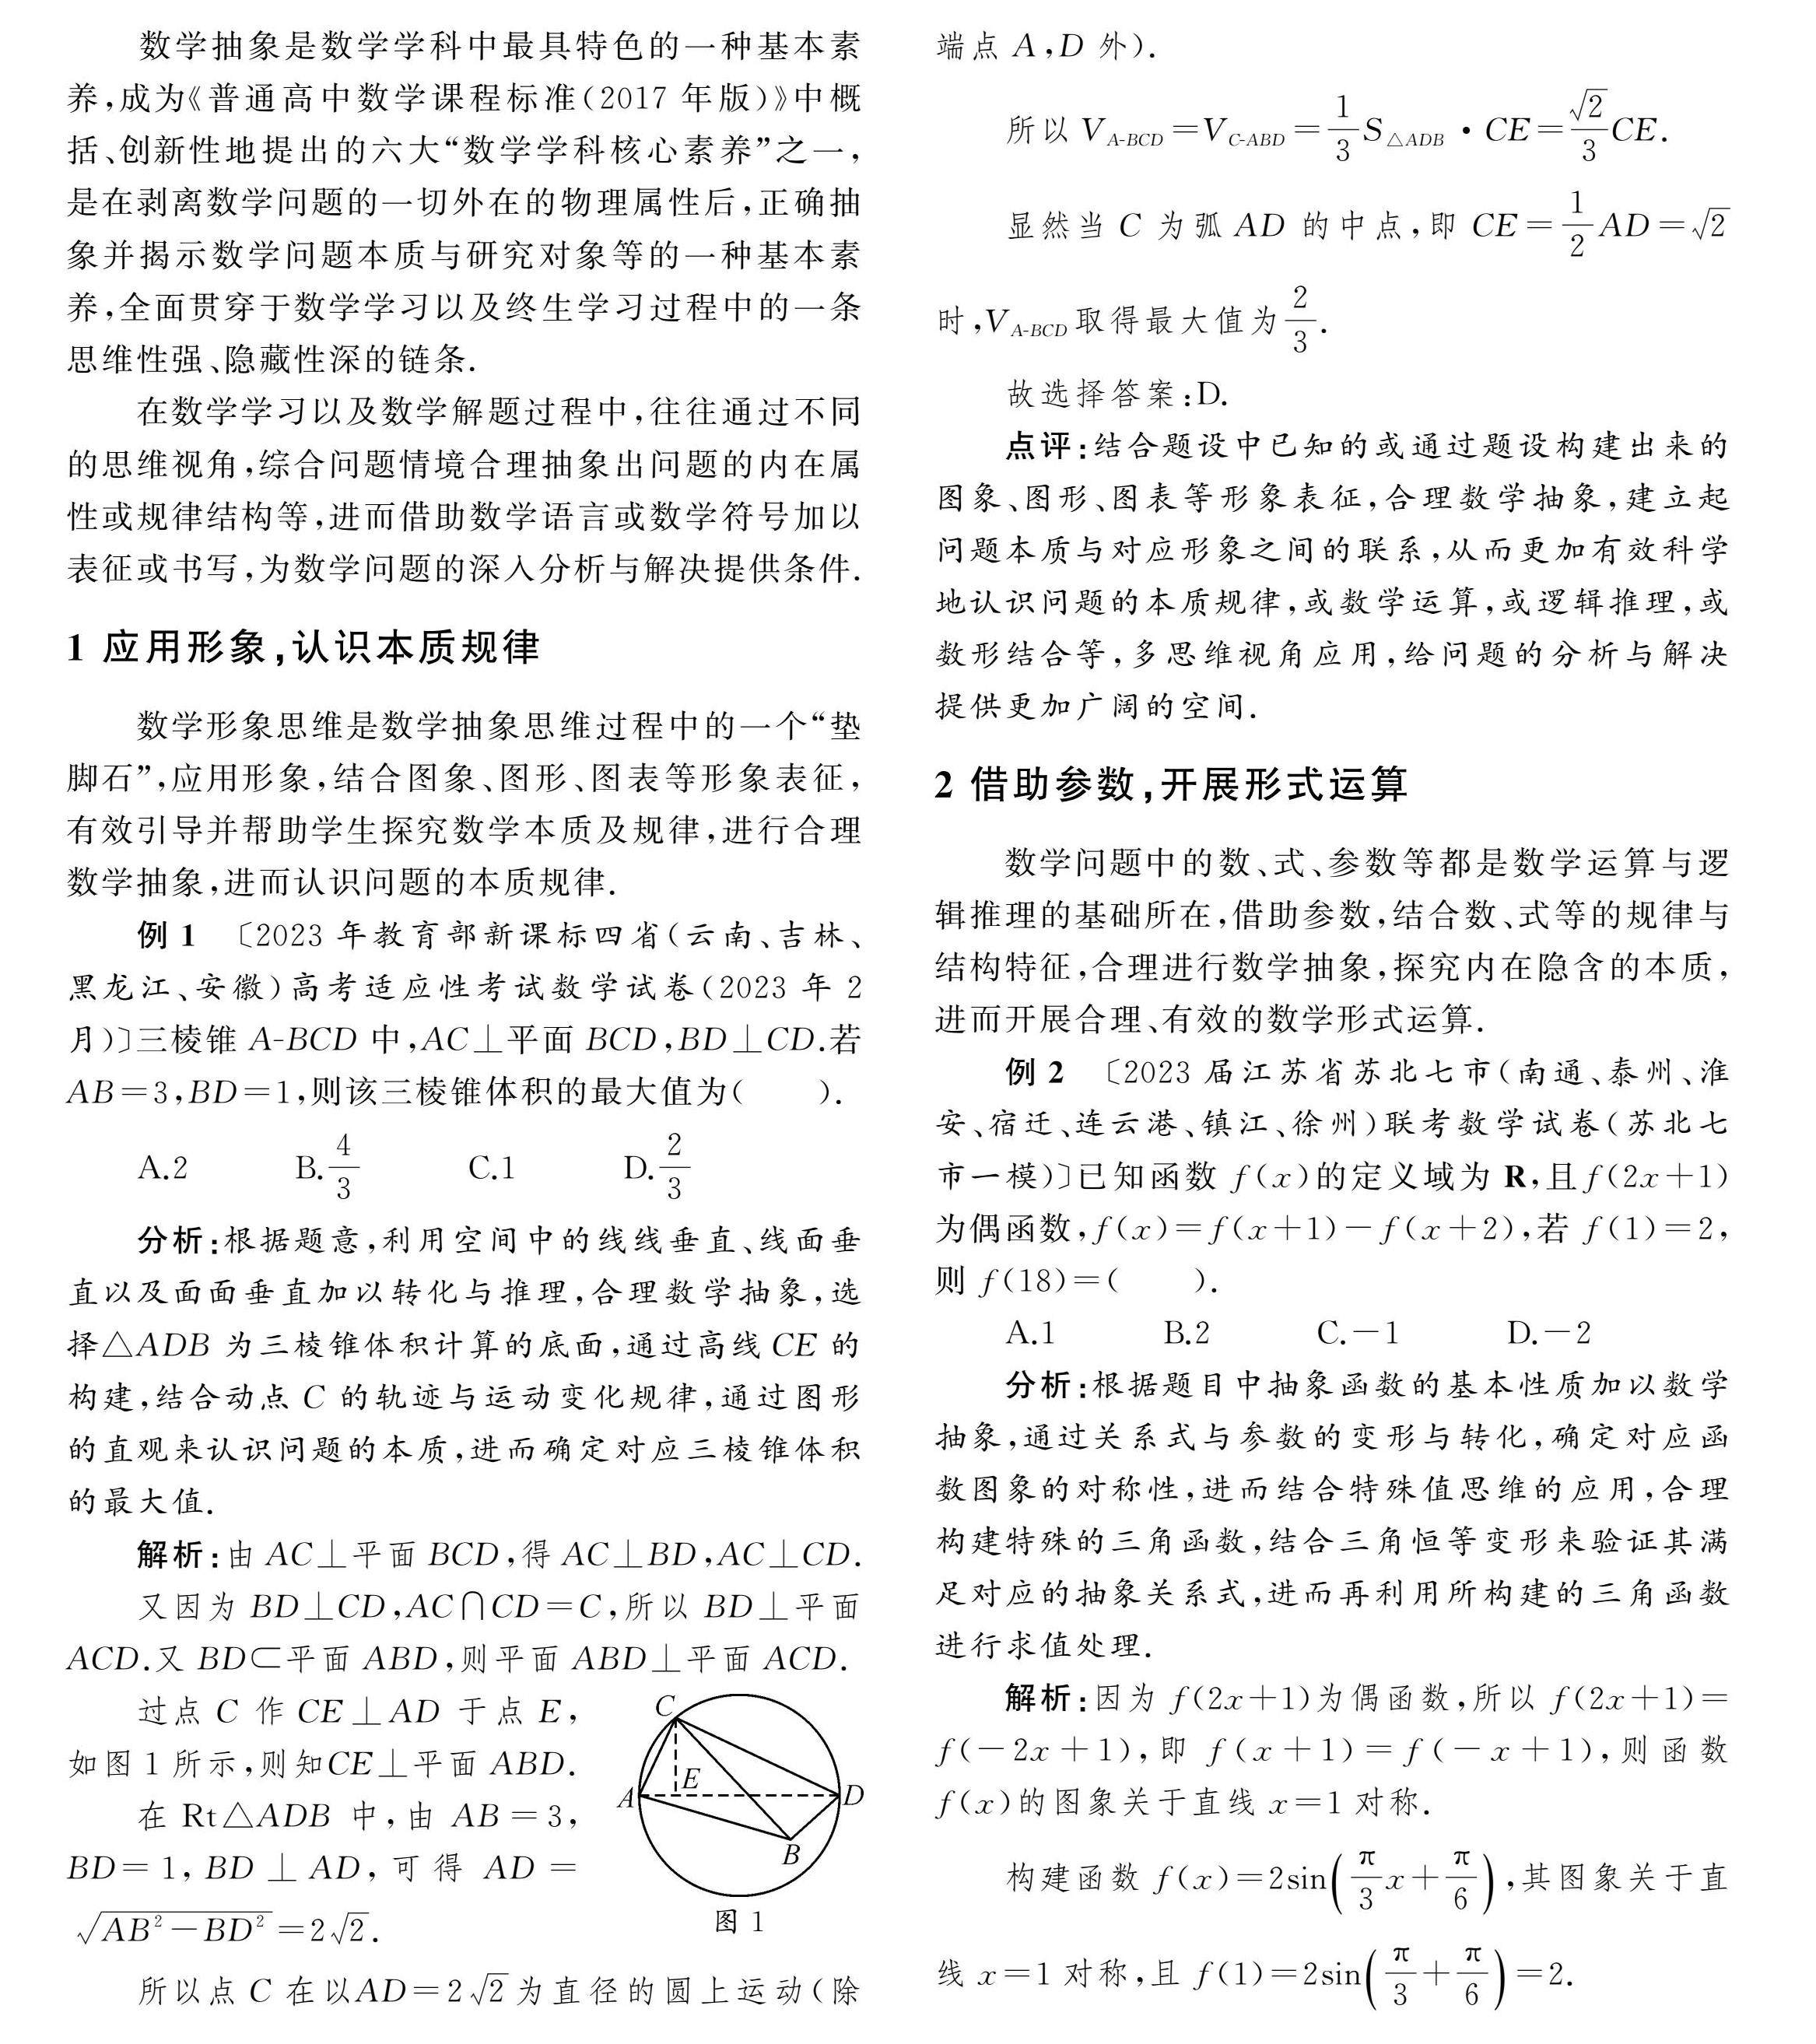 数学抽象是数学学科中最具特色的一种基本素
养,成为《普通高中数学课程标准(2017 年版)》中概
括、创新性地提出的六大“数学学科核心素养”之一,
是在剥离数学问题的一切外在的物理属性后,正确抽
象并揭示数学问题本质与研究对象等的一种基本素
养,全面贯穿于数学学习以及终生学习过程中的一条
思维性强、隐藏性深的链条.
在数学学习以及数学解题过程中,往往通过不同
的思维视角,综合问题情境合理抽象出问题的内在属
性或规律结构等,进而借助数学语言或数学符号加以
表征或书写,为数学问题的深入分析与解决提供条件.
1 应用形象,认识本质规律
数学形象思维是数学抽象思维过程中的一个“垫
脚石”,应用形象,结合图象、图形、图表等形象表征,
有效引导并帮助学生探究数学本质及规律,进行合理
数学抽象,进而认识问题的本质规律.
例 1 〔2023 年教育部新课标四省(云南、吉林、
黑龙江、安徽)高考适应性考试数学试卷(2023 年 2
月)〕三棱锥 A-BCD 中,AC⊥平面 BCD,BD⊥CD.若
AB=3,BD=1,则该三棱锥体积的最大值为(  ).
A.2 B.4/3 C.1 D.2/3
分析:根据题意,利用空间中的线线垂直、线面垂
直以及面面垂直加以转化与推理,合理数学抽象,选
择△ADB 为三棱锥体积计算的底面,通过高线 CE 的
构建,结合动点 C 的轨迹与运动变化规律,通过图形
的直观来认识问题的本质,进而确定对应三棱锥体积
的最大值.
解析:由 AC⊥平面 BCD,得 AC⊥BD,AC⊥CD.
又因为 BD⊥CD,AC∩CD=C,所以 BD⊥平面
ACD.又 BD⊂平面 ABD,则平面 ABD⊥平面 ACD.
过点 C 作 CE⊥AD 于点 E,
如图 1 所示,则知CE⊥平面 ABD.
在 Rt△ADB 中,由 AB=3,
BD=1,BD⊥AD,可得 AD=
√(AB²-BD²)=2√2.
C
A
E
D
B
图 1
所以点 C 在以AD=2√2为直径的圆上运动(除
端点 A,D 外).
所以 V_A-BCD=V_C-ABD=1/3 S_△ADB·CE=√2/3 CE.
显然当 C 为弧 AD 的中点,即 CE=1/2 AD=√2
时,V_A-BCD取得最大值为2/3.
故选择答案:D.
点评:结合题设中已知的或通过题设构建出来的
图象、图形、图表等形象表征,合理数学抽象,建立起
问题本质与对应形象之间的联系,从而更加有效科学
地认识问题的本质规律,或数学运算,或逻辑推理,或
数形结合等,多思维视角应用,给问题的分析与解决
提供更加广阔的空间.
2 借助参数,开展形式运算
数学问题中的数、式、参数等都是数学运算与逻
辑推理的基础所在,借助参数,结合数、式等的规律与
结构特征,合理进行数学抽象,探究内在隐含的本质,
进而开展合理、有效的数学形式运算.
例 2 〔2023 届江苏省苏北七市(南通、泰州、淮
安、宿迁、连云港、镇江、徐州)联考数学试卷(苏北七
市一模)〕已知函数 f(x)的定义域为 R,且f(2x+1)
为偶函数,f(x)=f(x+1)-f(x+2),若 f(1)=2,
则 f(18)=(  ).
A.1 B.2 C.-1 D.-2
分析:根据题目中抽象函数的基本性质加以数学
抽象,通过关系式与参数的变形与转化,确定对应函
数图象的对称性,进而结合特殊值思维的应用,合理
构建特殊的三角函数,结合三角恒等变形来验证其满
足对应的抽象关系式,进而再利用所构建的三角函数
进行求值处理.
解析:因为 f(2x+1)为偶函数,所以 f(2x+1)=
f(-2x+1),即 f(x+1)=f(-x+1),则函数
f(x)的图象关于直线 x=1 对称.
构建函数 f(x)=2sin(π/3 x+π/6),其图象关于直
线 x=1 对称,且 f(1)=2sin(π/3+π/6)=2.